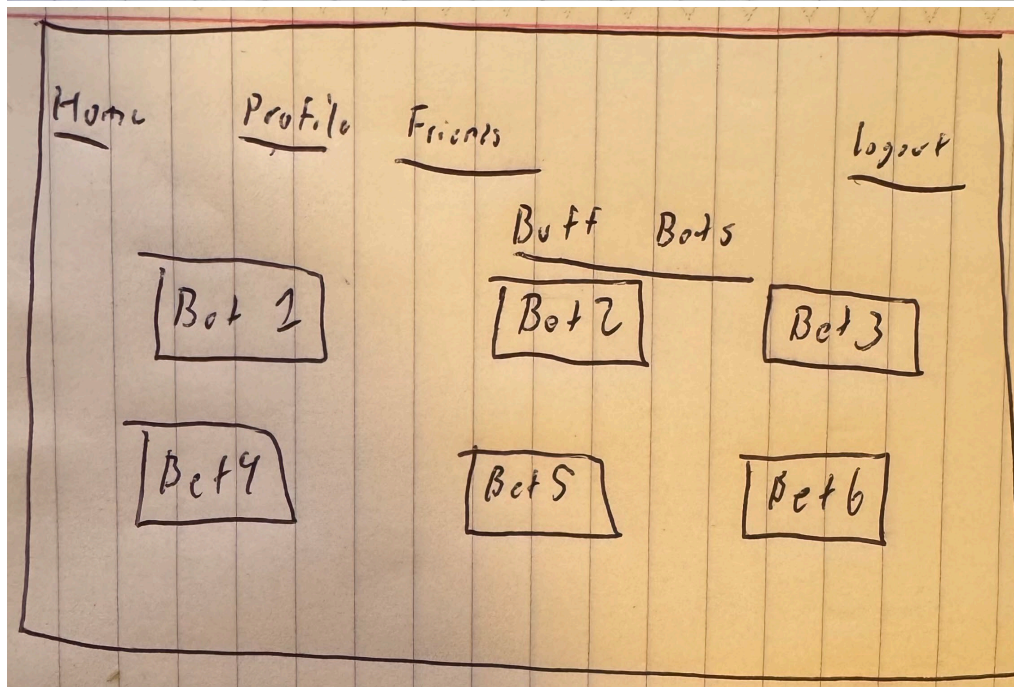 Home Profile Friends logout
Buff Bets
Bet 1 Bet 2 Bet 3
Bet 4 Bet 5 Bet 6